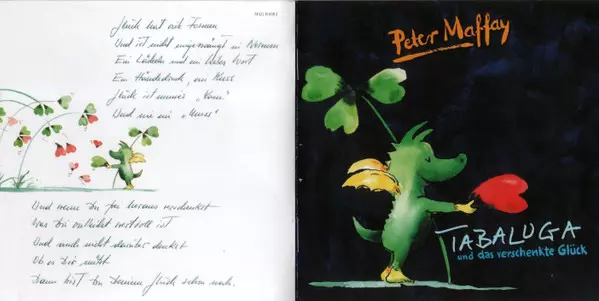 Glück hat viele Formen
Und ist nicht eingezwängt in Normen
Ein Lächeln und ein liebes Wort
Ein Händedruck, ein Kuss
Glück ist immer „Kann“
Und nie ein „Muss“
Und wenn Du frei heraus verschenkst
Was Dir vielleicht wertvoll ist
Und auch nicht darüber denkst
Ob es Dir nützt
Dann bist Du Deinem Glück schon nah.
Peter Maffay
TABALUGA
und das verschenkte Glück